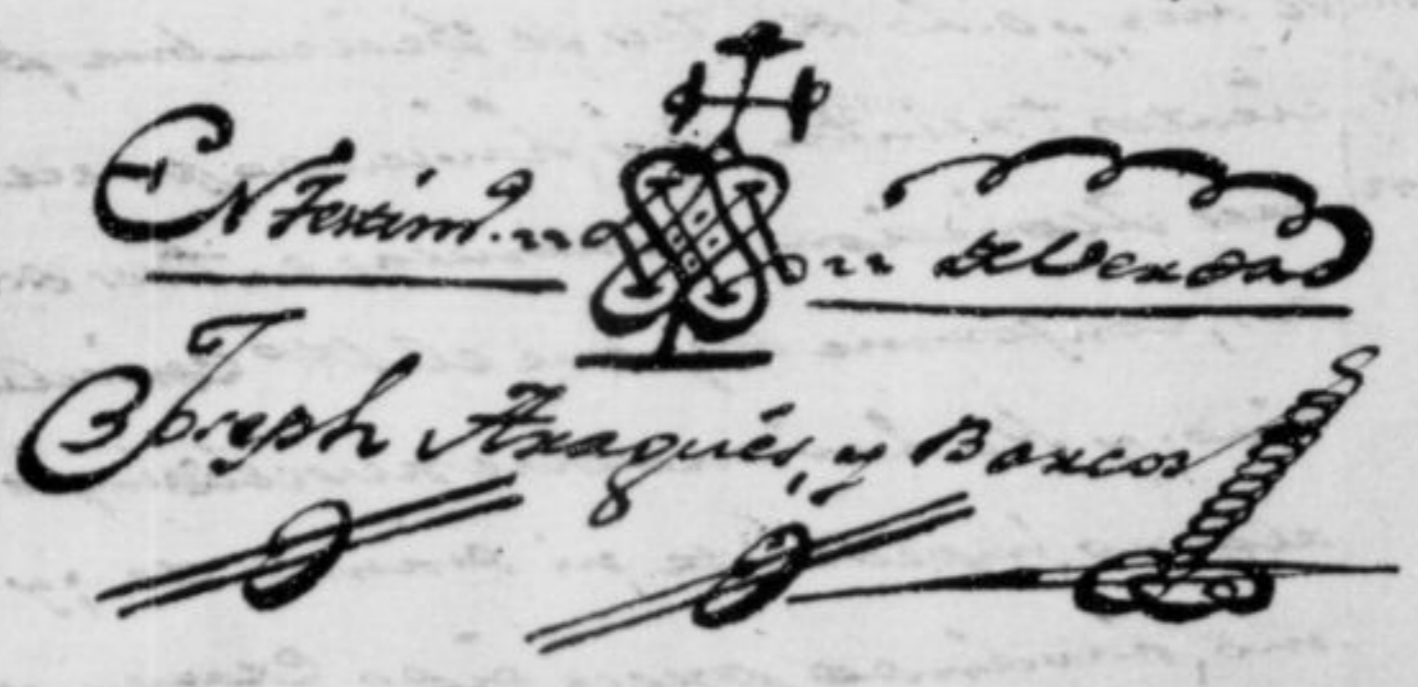 En Testimo. de Verdad
Joseph Aragués, y Barcos